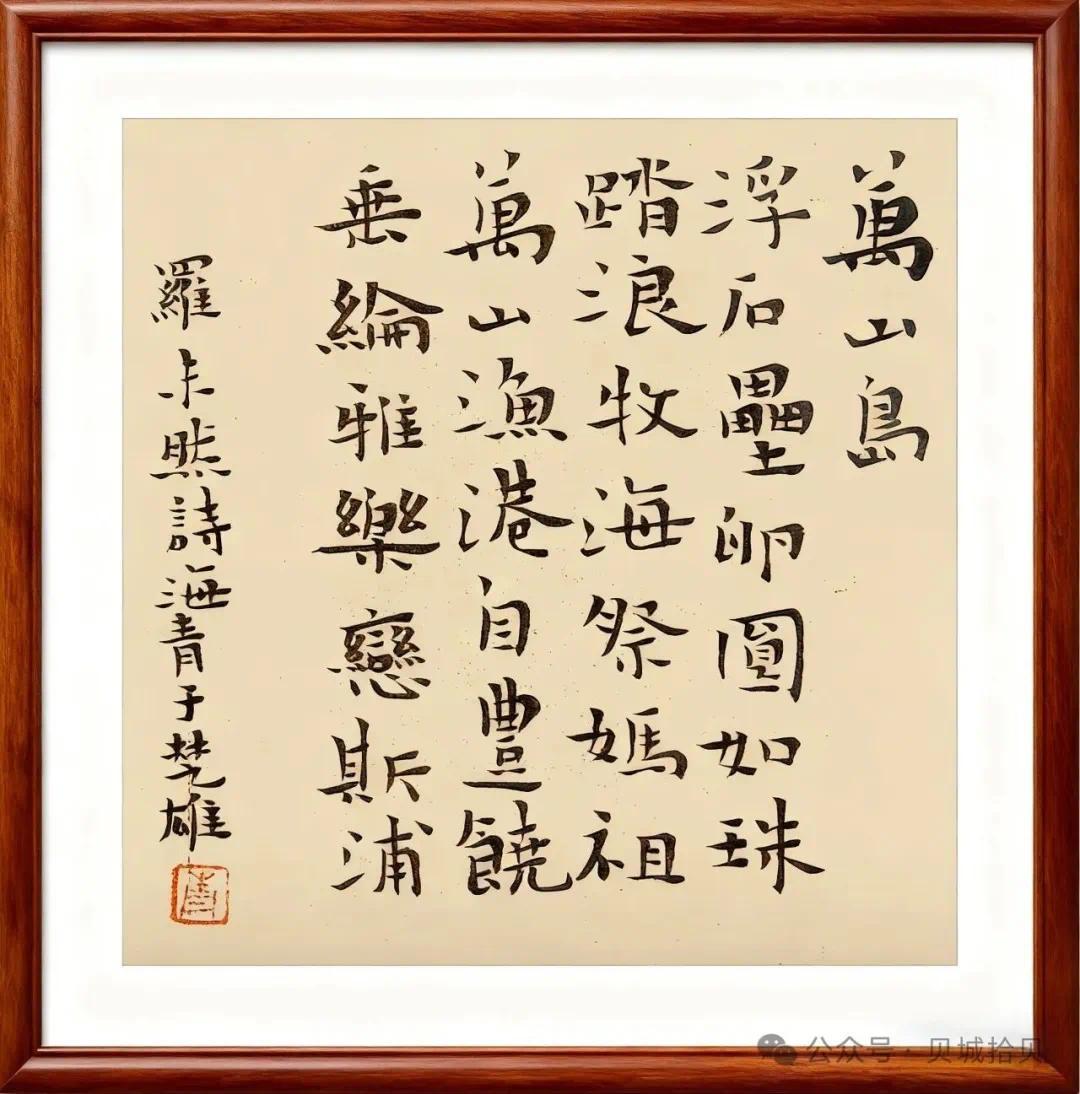 萬山島
浮石壘卵圓如珠
踏浪牧海祭媽祖
萬山漁港自豐饒
垂綸雅樂戀斯浦
羅未然詩海青于楚雄
公众号·贝城拾贝